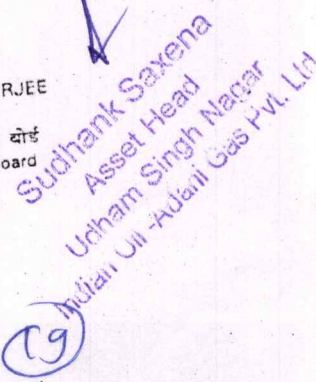 RJEE
बोर्ड
oard
Sudhank Saxena
Asset Head
Udham Singh Nagar
Indian Oil -Adani Gas Pvt. Ltd
19